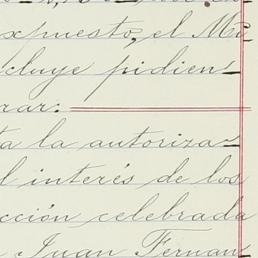 xpuesto, el Mi
cluye pidien
rar:
ta la autoriza
l interés de los
cción celebrada
Juan Fernan